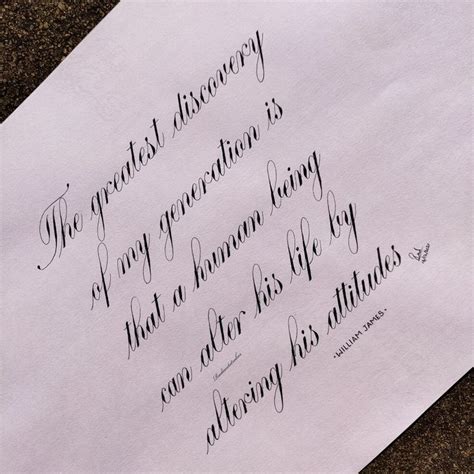 The greatest discovery
of my generation is
that a human being
can alter his life by
altering his attitudes
·WILLIAM JAMES·